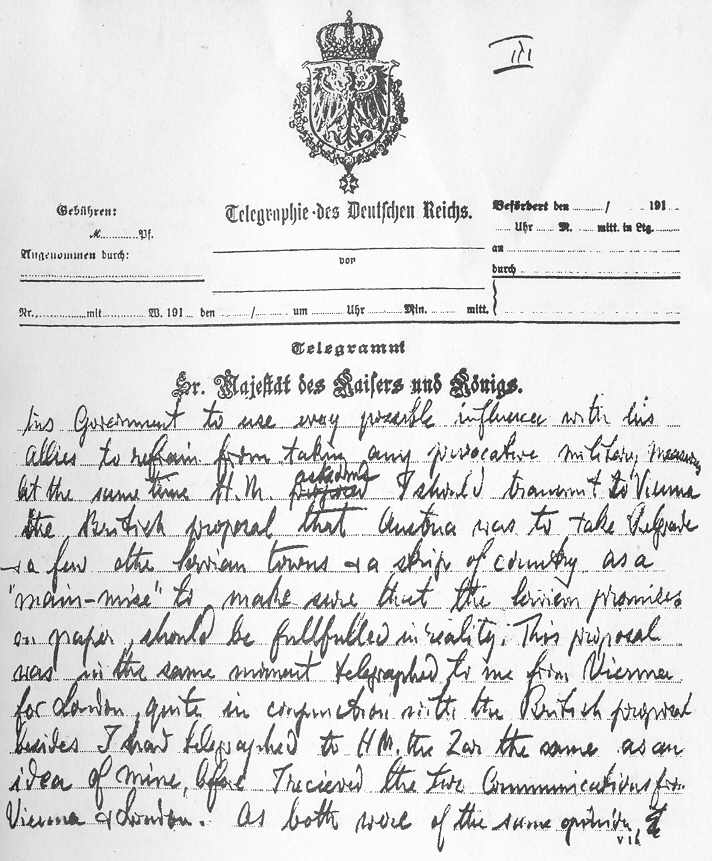 III
Gebühren:
M. Pf.
Angenommen durch:
Telegraphie des Deutschen Reichs.
von
Befördert den / 191
Uhr M. mitt. in Ltg.
an
durch
Nr. mit W. 191 den / um Uhr Min. mitt.
Telegramm
Sr. Majestät des Kaisers und Königs.
his Government to use every possible influence with his
allies to refrain from taking any provocative military measures
At the same time H.M. asked me proposed I should transmit to Vienna
the British proposal that Austria was to take Belgrade
+ a few other Servian towns + a strip of country as a
"main-mise" to make sure that the Servian promises
on paper should be fullfulled in reality. This proposal
was in the same moment telegraphed to me from Vienna
for London, quite in conjunction with the British proposal
besides I had telegraphed to H.M. the Zar the same as an
idea of mine, before I recieved the two Communications from
Vienna + London. As both were of the same opinion,